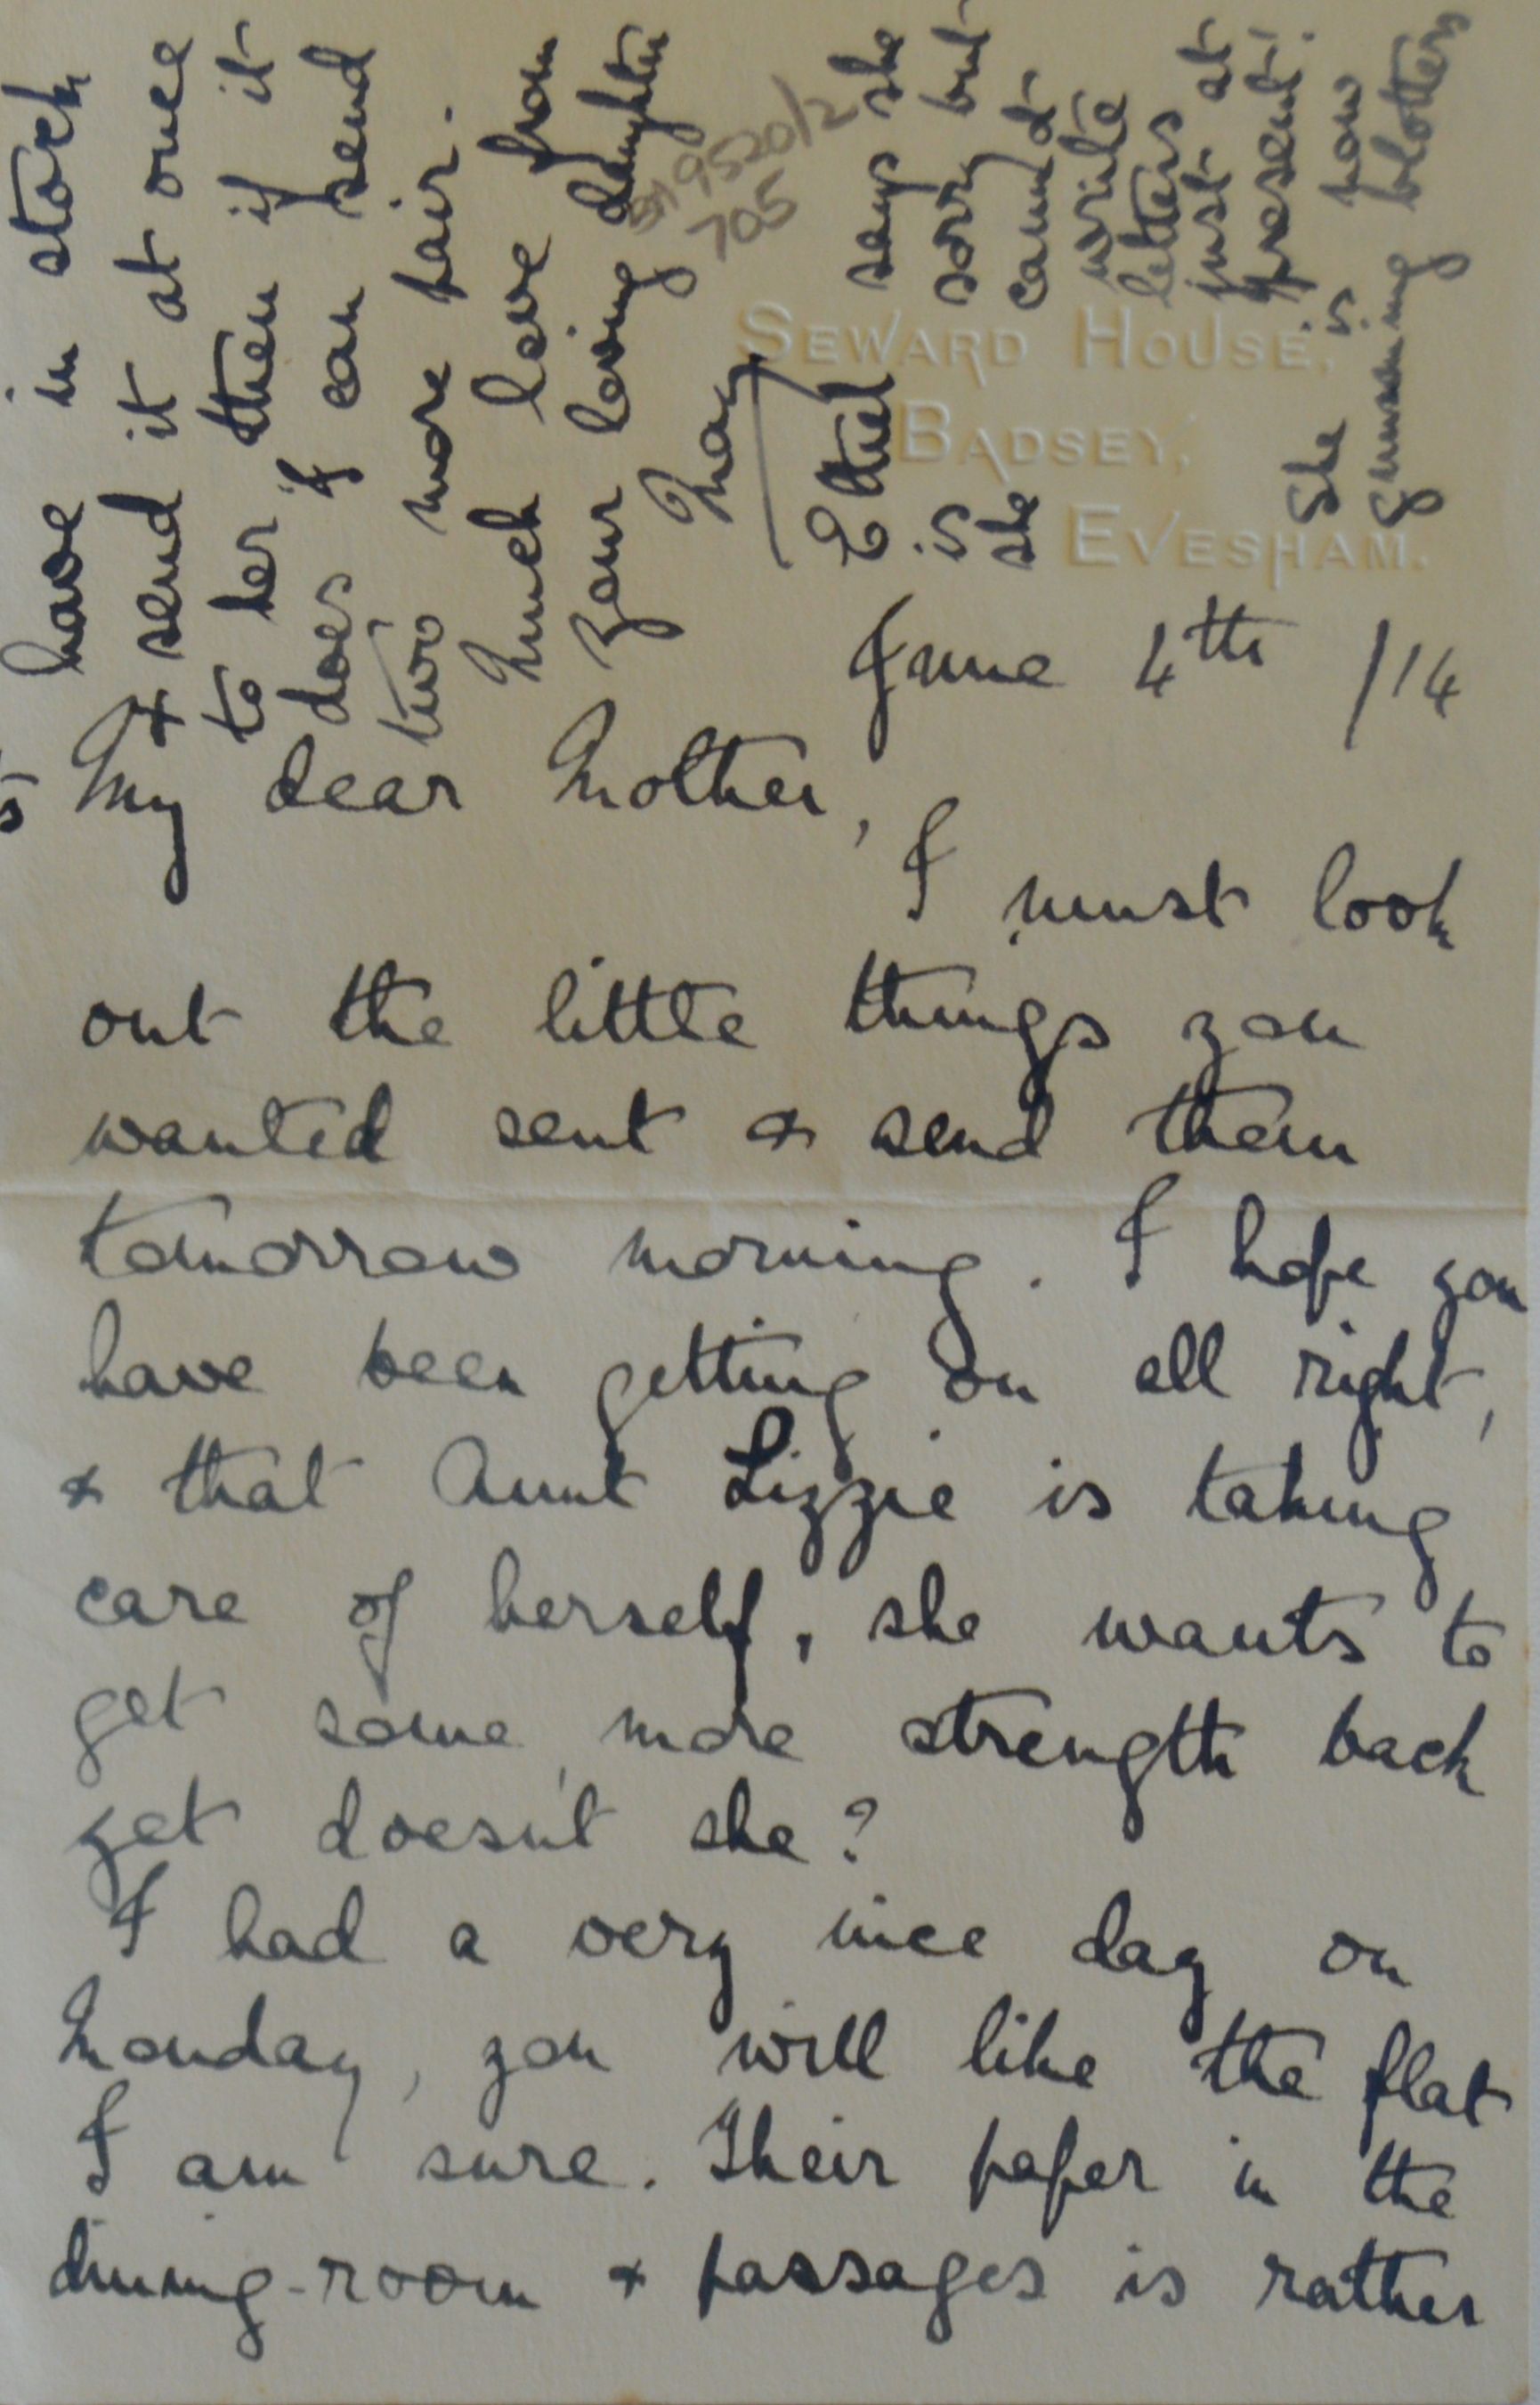 SEWARD HOUSE,
BADSEY,
EVESHAM.
June 4th /14
My dear Mother,
I must look
out the little things you
wanted sent & send them
tomorrow morning. I hope you
have been getting on all right,
& that Aunt Lizzie is taking
care of herself, she wants to
get some more strength back
yet doesn't she?
I had a very nice day on
Monday, you will like the flat
I am sure. Their paper in the
dining-room & passages is rather
have in stock
& send it at once
to her then if it
does if I can send
two more pair.
Much love from
your loving daughter
May
Ethel says she
is sorry but
she cannot
write
letters
just at
present!
She is now
gumming blotters
9520/2
705